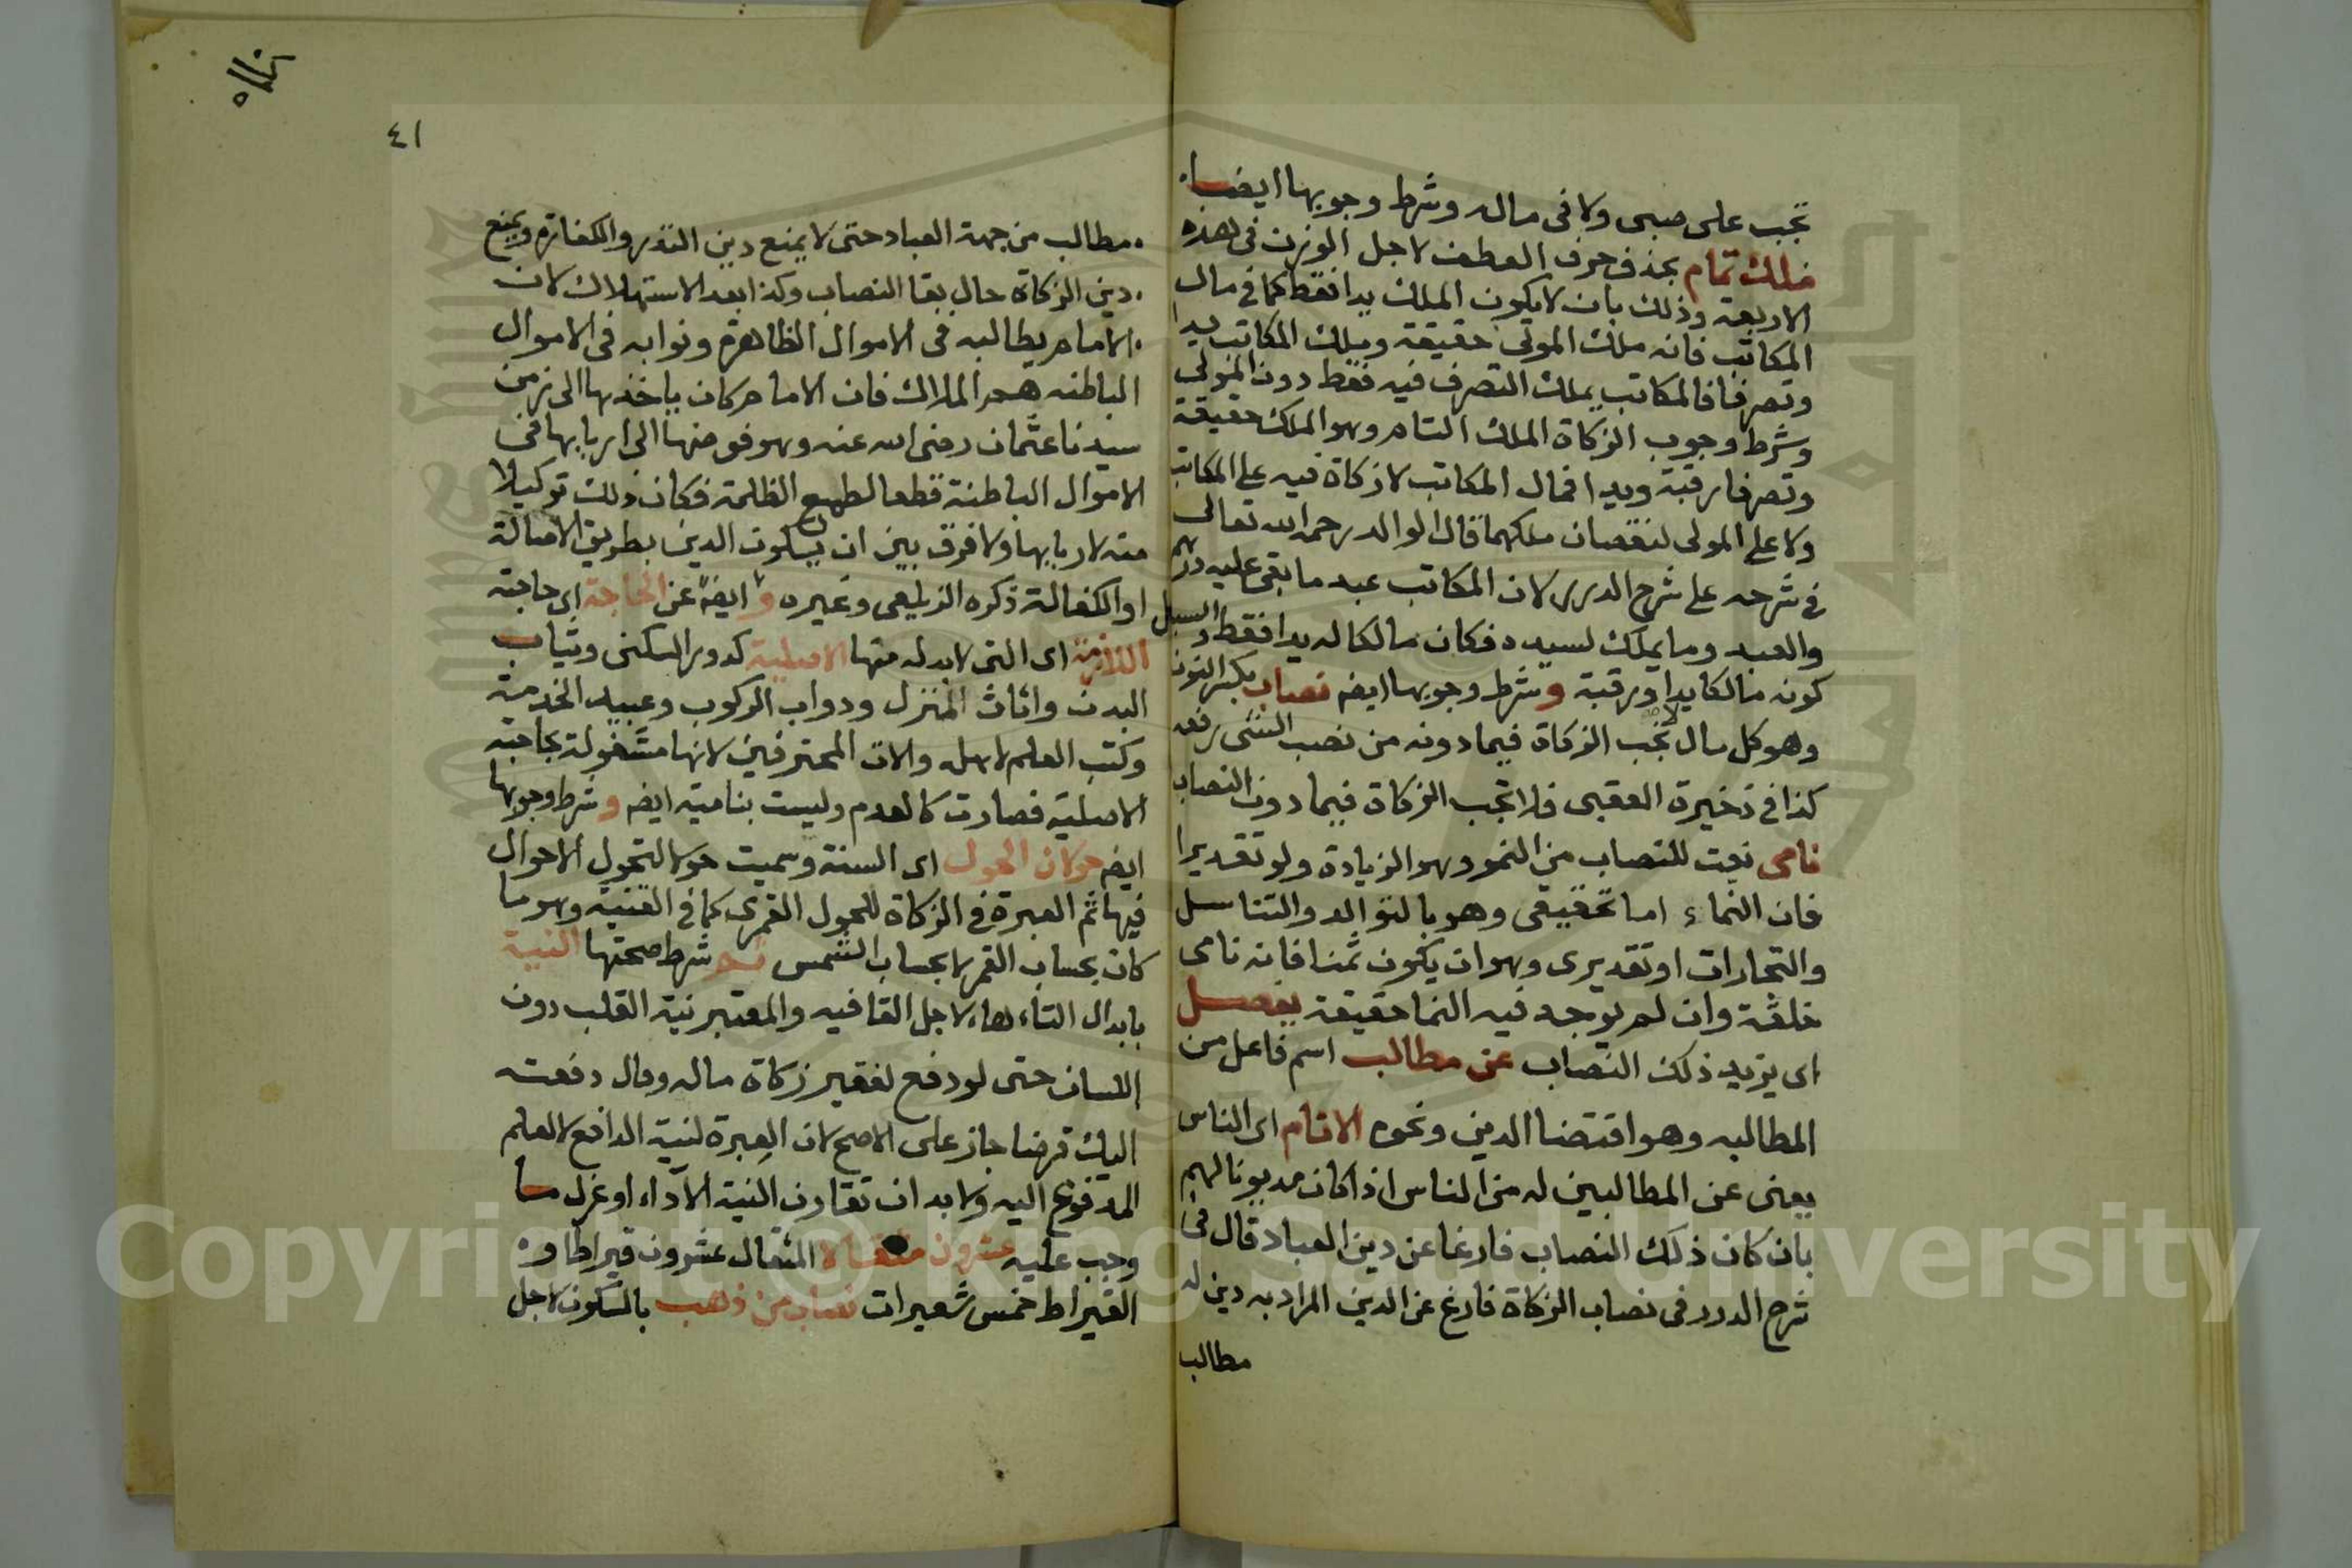 تجب على صبى ولا فى ماله وشرط وجوبها ايضا
ملك تمام بحذف حرف العطف لاجل الوزن فى هذه
الاربعة وذلك بان لا يكون الملك يدا فقط كما فى مال
المكاتب فانه ملك المولى حقيقة وملك المكاتب يدا
وتصرفا فالمكاتب يملك التصرف فيه فقط دون المولى
وشرط وجوب الزكاة الملك التام وهو الملك حقيقة
وتصرفا رقبة ويدا فمال المكاتب لا زكاة فيه على المكاتب
ولا على المولى لنقصان ملكهما قال الوالد رحمه الله تعالى
فى شرحه على شرح الدرر لان المكاتب عبد ما بقى عليه درهم
والعبد وما يملك لسيده فكان مالكا له يدا فقط والسبل
كونه مالكا يدا ورقبة وشرط وجوبها ايضه نصاب بكسر النون
وهو كل مال لا تجب الزكاة فيما دونه من نصب الشى رفعه
كذا فى ذخيرة العقبى فلا تجب الزكاة فيما دون النصاب
نامى نعت للنصاب من النمو وهو الزيادة ولو تقديرا
فان النماء اما تحقيقى وهو بالتوالد والتناسل
والتجارات او تقديرى وهو ان يكون ثمنا فانه نامى
خلقة وان لم يوجد فيه النما حقيقة يفصل
اى يزيد ذلك النصاب عن مطالب اسم فاعل من
المطالبه وهو اقتضا الدين ونحوه الانام اى الناس
يعنى عن المطالبين له من الناس اذا كان مديونا لهم
بان كان ذلك النصاب فارغا عن دين العباد قال فى
شرح الدرر فى نصاب الزكاة فارغ عن الدين المراد به دين له
مطالب
٤١
مطالب من جهة العباد حتى لا يمنع دين النذر والكفارة ويمنع
دين الزكاة حال بقا النصاب وكذا بعد الاستهلاك لان
الامام يطالبه فى الاموال الظاهرة ونوابه فى الاموال
الباطنه هم الملاك فان الامام كان ياخذها الى زمن
سيدنا عثمان رضى الله عنه وهو فوضها الى اربابها فى
الاموال الباطنة قطعا لطمع الظلمة فكان ذلك توكيلا
منه لاربابها ولا فرق بين ان يكون الدين بطريق الاصالة
او الكفالة ذكره الزيلعى وغيره و ايضه عن الحاجة اى حاجته
اللازمة اى التى لا بد له منها الاصلية كدور السكنى وثياب
البدن واثاث المنزل ودواب الركوب وعبيد الخدمة
وكتب العلم لاهله والات المحترفين لانها مشغولة بحاجته
الاصلية فصارت كالعدم وليست بنامية ايضه وشرط وجوبها
ايضه حولان الحول اى السنة وسميت حولا لتحول الاحوال
فيها ثم العبرة فى الزكاة للحول القمرى كما فى القنية وهو ما
كان بحساب القمر لا بحساب الشمس ثم شرط صحتها النية
بابدال التاء هاء لاجل القافيه والمعتبر نية القلب دون
اللسان حتى لو دفع لفقير زكاة ماله وقال دفعته
اليك قرضا جاز على الاصح لان العبرة لنية الدافع لا لعلم
المدفوع اليه ولا بد ان تقارن النية الاداء او عزل ما
وجب عليه عشرون مثقالا المثقال عشرون قيراطا و
القيراط خمس شعيرات نصاب من ذهب بالسكون لاجل
Copyright © King Saud University